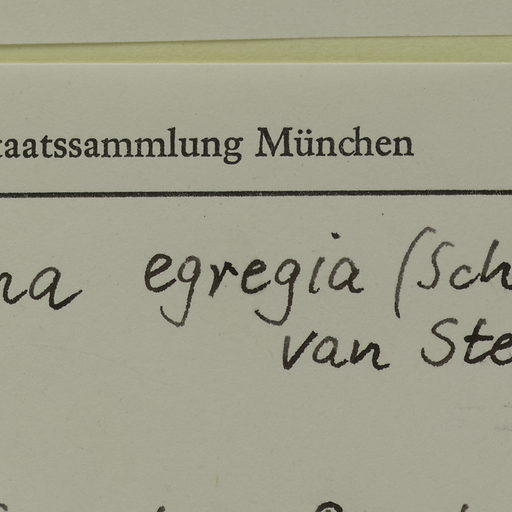 taatssammlung München
na egregia (Sch
van Ste